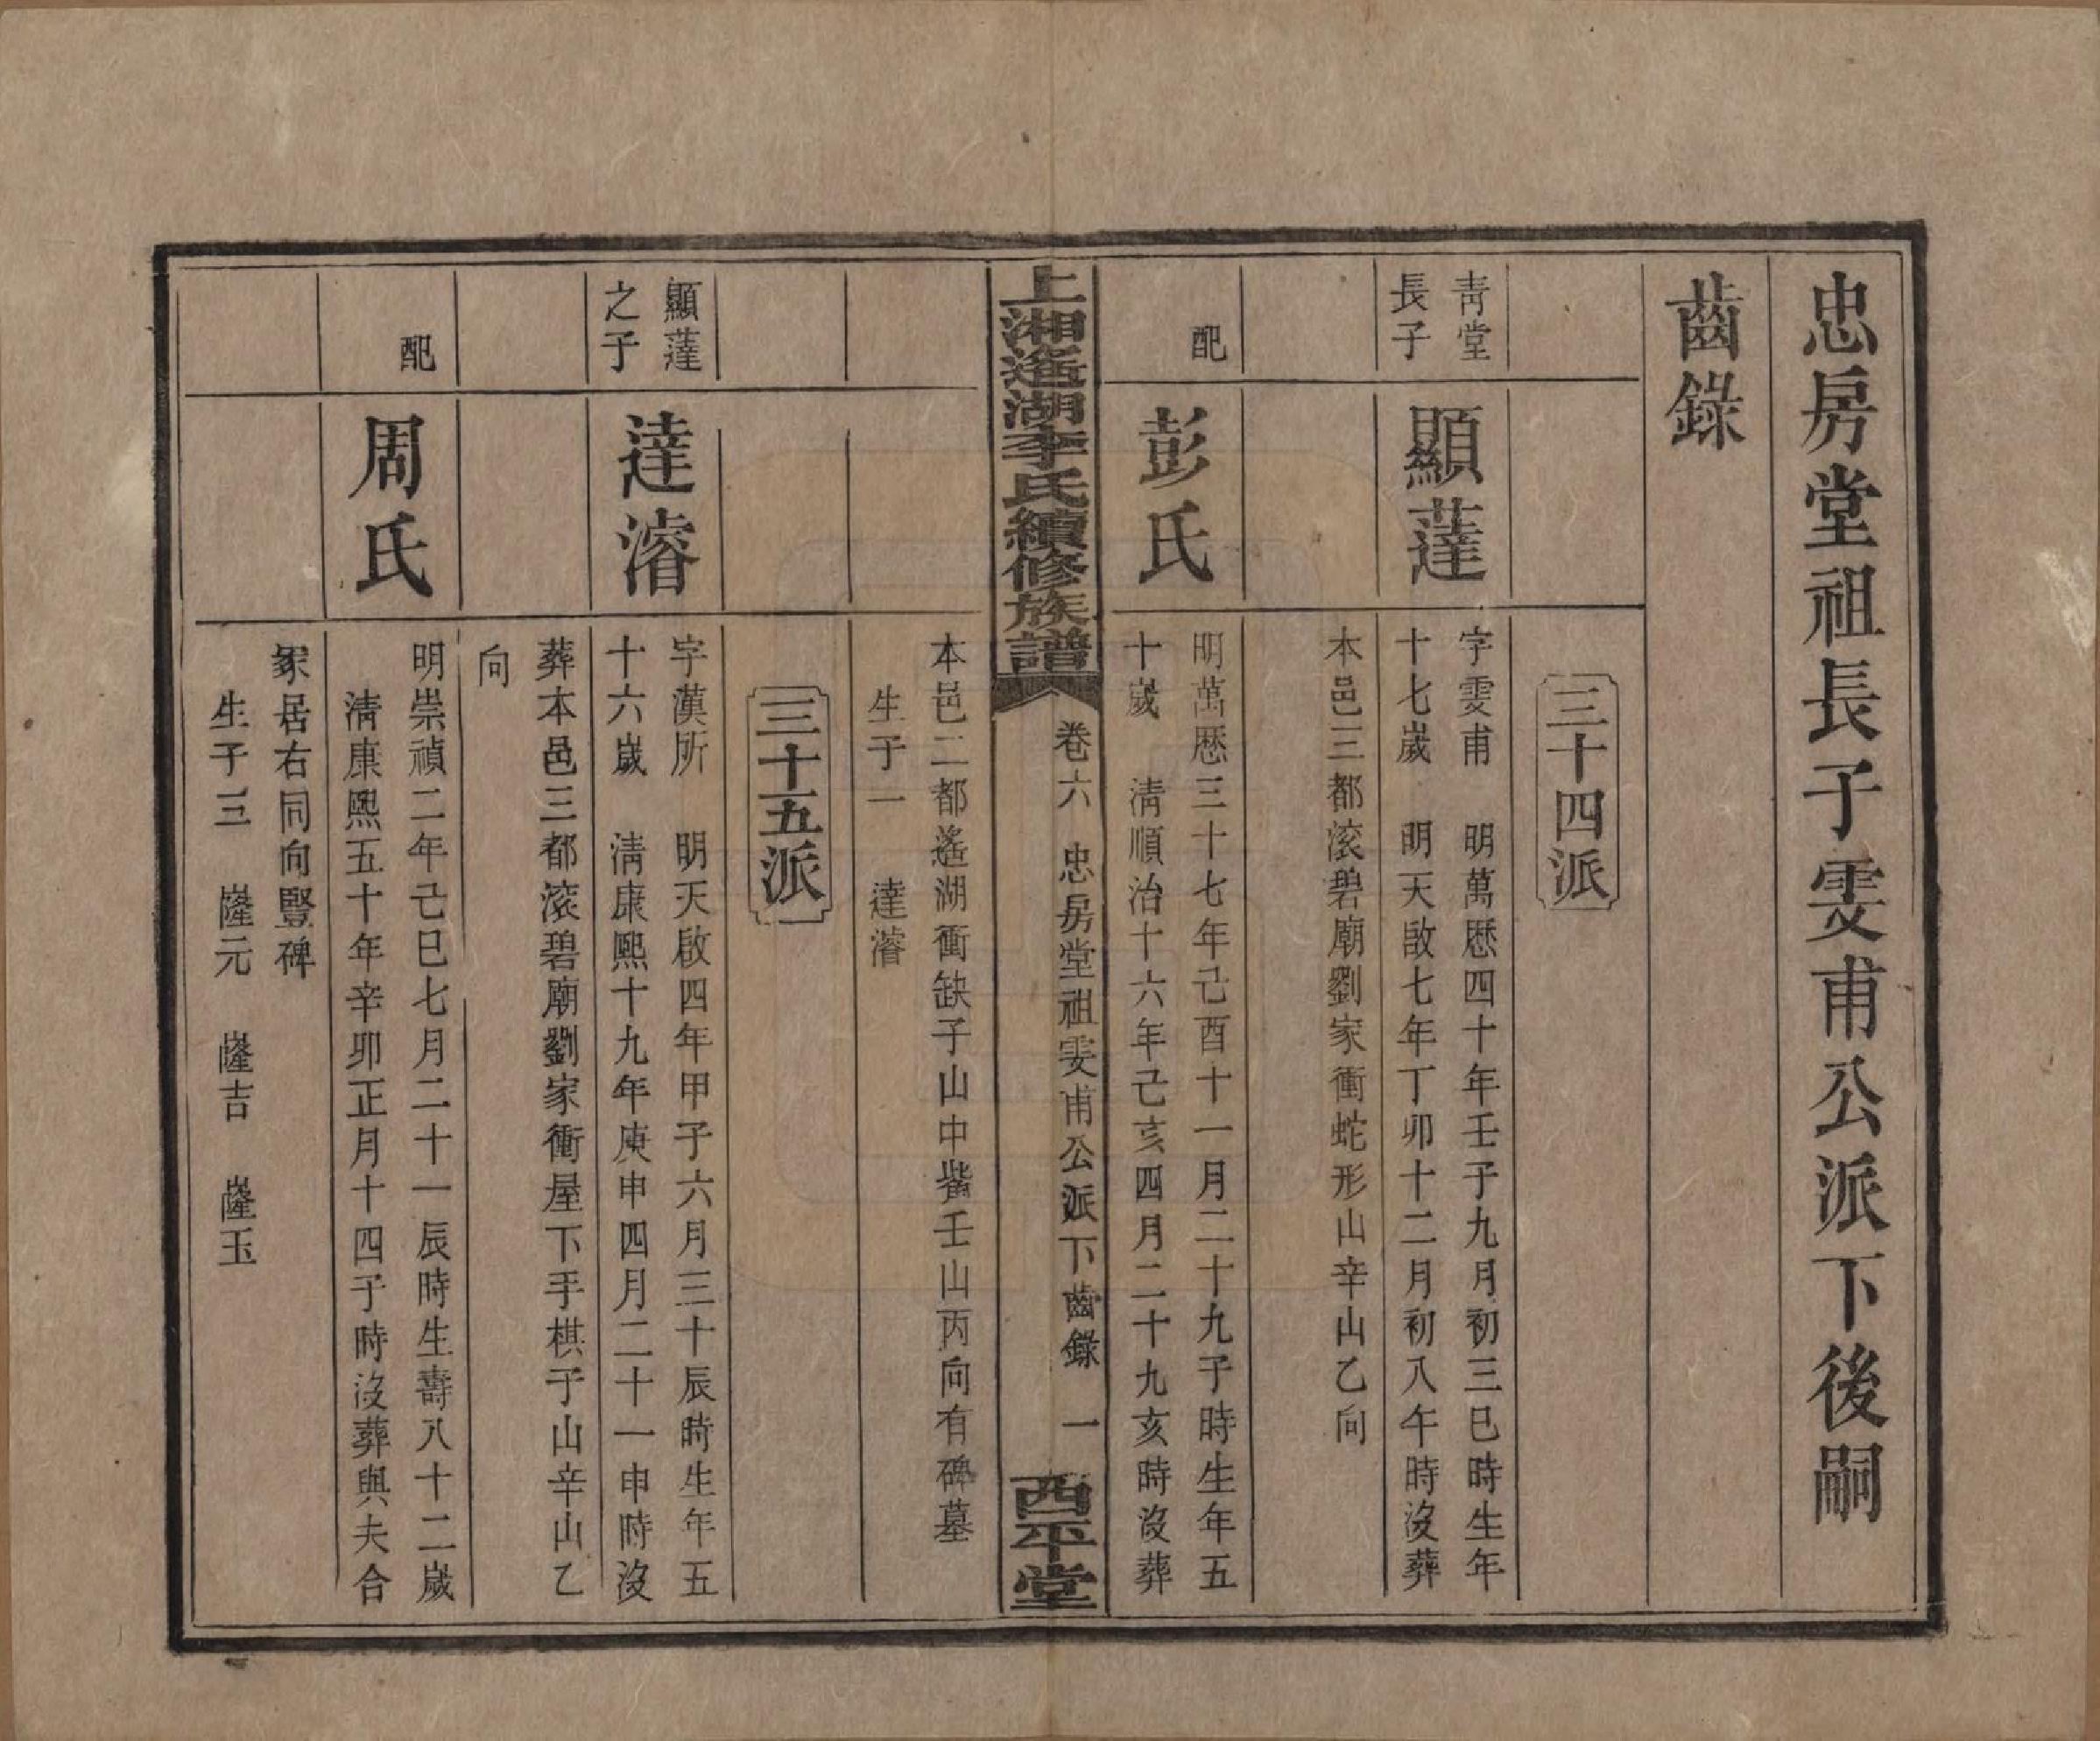 忠房堂祖長子雯甫公派下後嗣
齒錄
三十四派
青堂
長子
顯薘
字雯甫　明萬厯四十年壬子九月初三巳時生年
十七歲　明天啟七年丁卯十二月初八午時沒葬
本邑三都滚碧廟劉家衝蛇形山辛山乙向
配
彭氏
明萬厯三十七年己酉十一月二十九子時生年五
十歲　清順治十六年己亥四月二十九亥時沒葬
上湘遙湖李氏續修族譜
卷六　忠房堂祖雯甫公派下齒錄　一
西平堂
本邑二都遙湖衝缺子山中嘴壬山丙向有碑墓
生子一　達濬
三十五派
顯薘
之子
達濬
字漢所　明天啟四年甲子六月三十辰時生年五
十六歲　清康熙十九年庚申四月二十一申時沒
葬本邑三都滚碧廟劉家衝屋下手棋子山辛山乙
向
配
周氏
明崇禎二年己巳七月二十一辰時生壽八十二歲
清康熙五十年辛卯正月十四子時沒葬與夫合
冢居右同向豎碑
生子三　嶐元　嶐吉　嶐玉